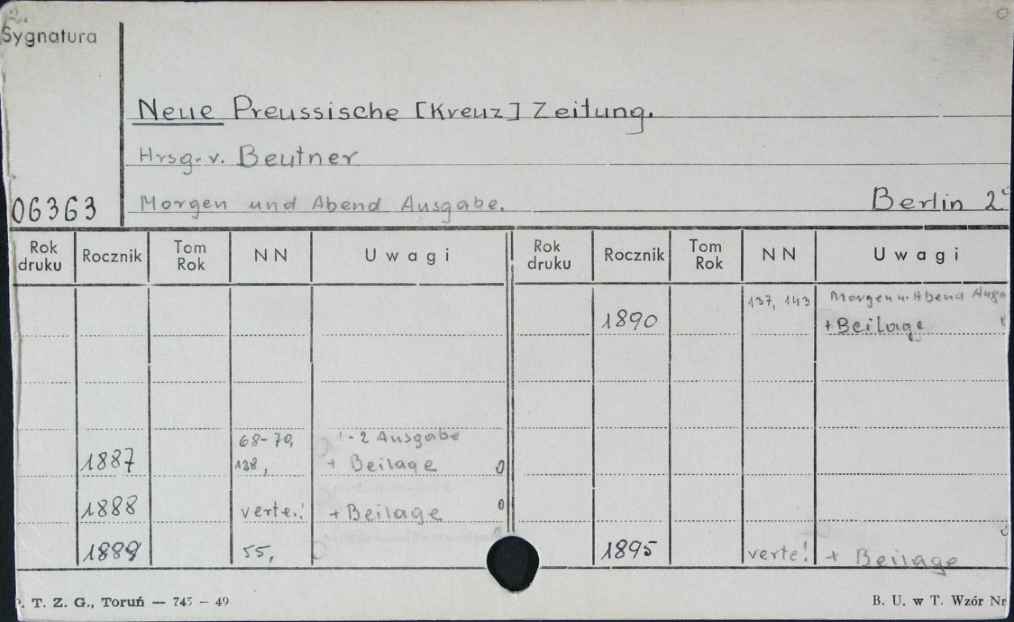 2.
Sygnatura
Neue Preussische [Kreuz] Zeitung.
Hrsg. v. Beutner
06363
Morgen und Abend Ausgabe.
Berlin 2°
Rok druku Rocznik Tom Rok NN Uwagi Rok druku Rocznik Tom Rok NN Uwagi
1890 137, 143 Morgen u. Abend Ausg
+ Beilage
1887 68-70, 1-2 Ausgabe
138, + Beilage 0
1888 verte! + Beilage 0
1889 55,
1895 verte! + Beilage
P. T. Z. G., Toruń — 745 — 49
B. U. w T. Wzór Nr